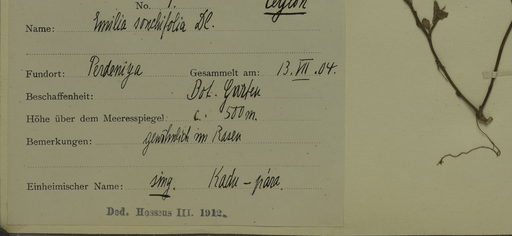 No. 1. Ceylon
Name: Emilia sonchifolia DC.
Fundort: Perdeniya Gesammelt am: 13. VII. 04.
Beschaffenheit: Bot. Garten
Höhe über dem Meeresspiegel: c. 500 m.
Bemerkungen: gewöhnlich im Rasen
Einheimischer Name: sing. Kadu-pára.
Ded. Hosseus III. 1912.